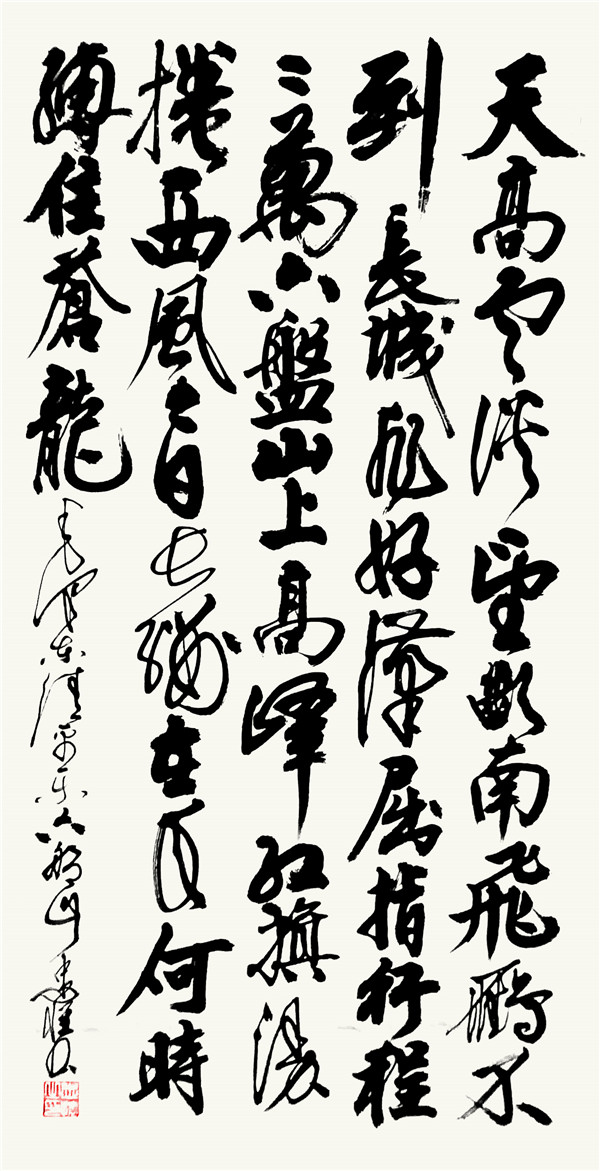 天高雲淡望斷南飛雁不
到長城非好漢屈指行程
二萬六盤山上高峰紅旗漫
捲西風今日長纓在手何時
縛住蒼龍 毛澤東清平樂六盤山 書